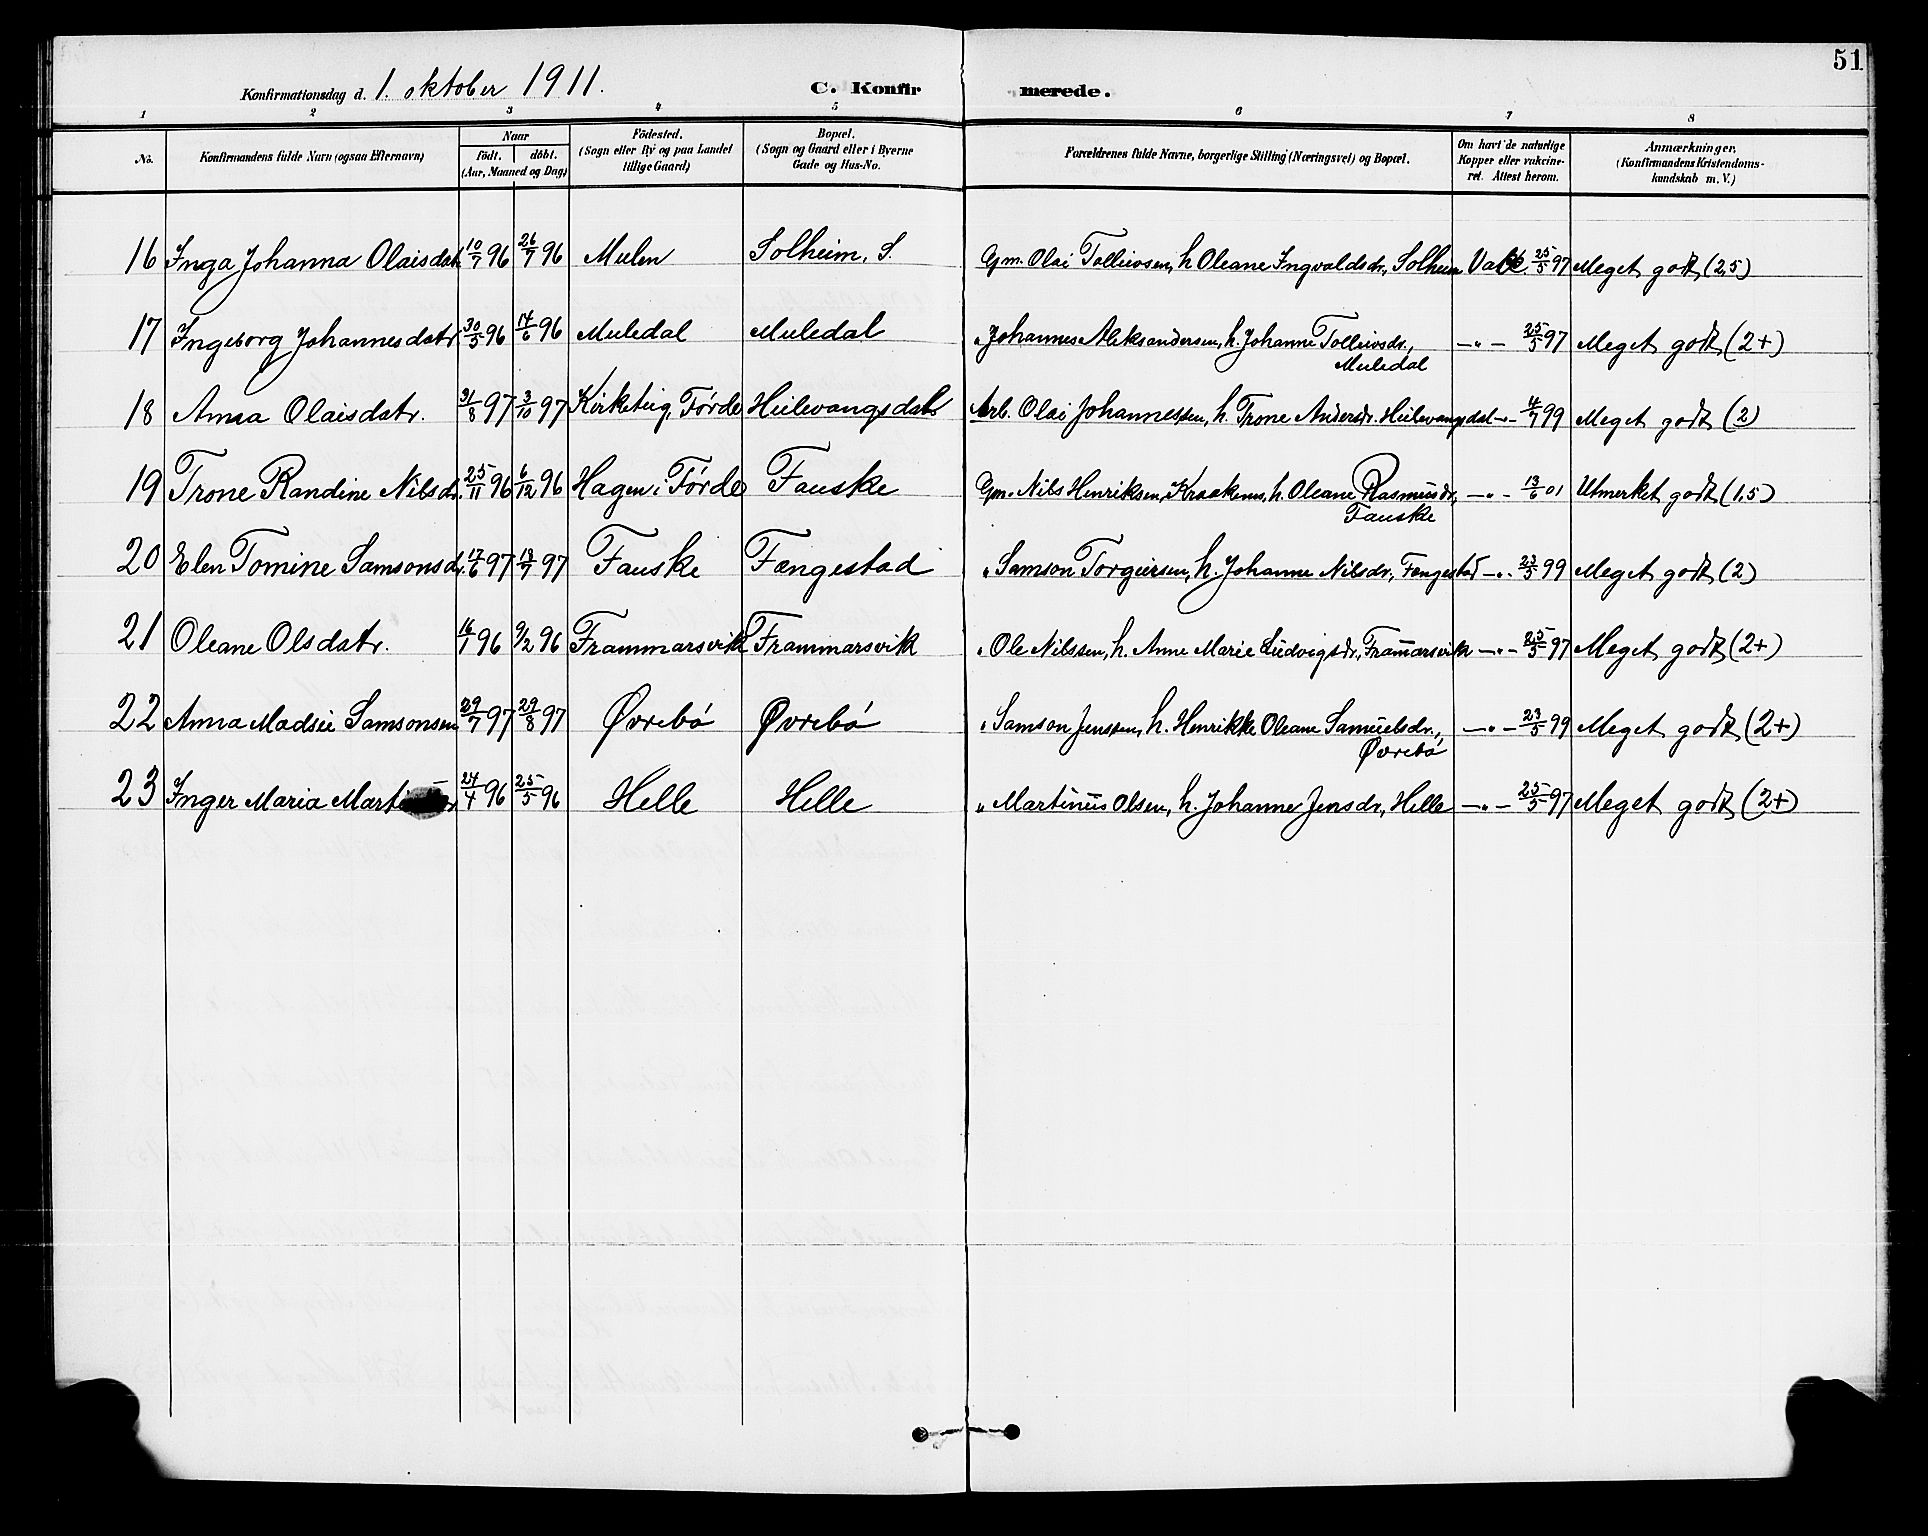 51
Konfirmationsdag d. 1. oktober 1911. C. Konfirmerede.
1 2 3 4 5 6 7 8
No. Konfirmandens fulde Navn (ogsaa Efternavn) Naar født. døbt. (Aar, Maaned og Dag) Födested. (Sogn eller By og paa Landet tillige Gaard) Bopæl. (Sogn og Gaard eller i Byerne Gade og Hus-No. Forældrenes fulde Navne, borgerlige Stilling (Næringsvei) og Bopæl. Om havt de naturlige Kopper eller vakcineret. Attest herom. Anmærkninger. (Konfirmandens Kristendomskundskab m. V.)
16 Inga Johanna Olaisdatr 10/7 96 26/7 96 Mulen Solheim, S. Gm. Olai Tolleivsen, h Oleane Ingvaldsdr, Solheim Vacc. 25/5 97 Meget godt (2,5)
17 Ingeborg Johannesdatr. 30/5 96 14/6 96 Muledal Muledal " Johannes Aleksandersen, h. Johanne Tolleivsdr., Muledal —"— 25/5 97 Meget godt (2+)
18 Anna Olaisdatr. 31/8 97 3/10 97 Kirketeig, Förde Heilevangsdal Arb. Olai Johannessen, h. Trone Andersdr. Heilevangsdal —"— 4/7 99 Meget godt (2)
19 Trone Randine Nilsdr. 25/11 96 6/12 96 Hagen i Förde Fauske Gm. Nils Henriksen, Kraakenes, h. Oleane Rasmusdr, Fauske —"— 13/6 01 Utmerket godt (1,5)
20 Elen Tomine Samsonsdr. 17/6 97 18/7 97 Fauske Fængestad " Samson Torgeirsen, h. Johanne Nilsdr., Fængestad —"— 23/5 99 Meget godt (2)
21 Oleane Olsdatr. 16/1 96 9/2 96 Frammarsvik Frammarsvik " Ole Nilssen, h. Anne Marie Ludvigsdr., Framarsvik —"— 25/5 97 Meget godt (2+)
22 Anna Madsie Samsonsen 29/7 97 29/8 97 Øvrebö Øvrebö " Samson Jenssen, h. Henrikke Oleane Samuelsdr., Øvrebö —"— 23/5 99 Meget godt (2+)
23 Inger Maria 24/4 96 25/5 96 Helle Helle " Martinus Olsen, h. Johanne Jensdr., Helle —"— 25/5 97 Meget godt (2+)